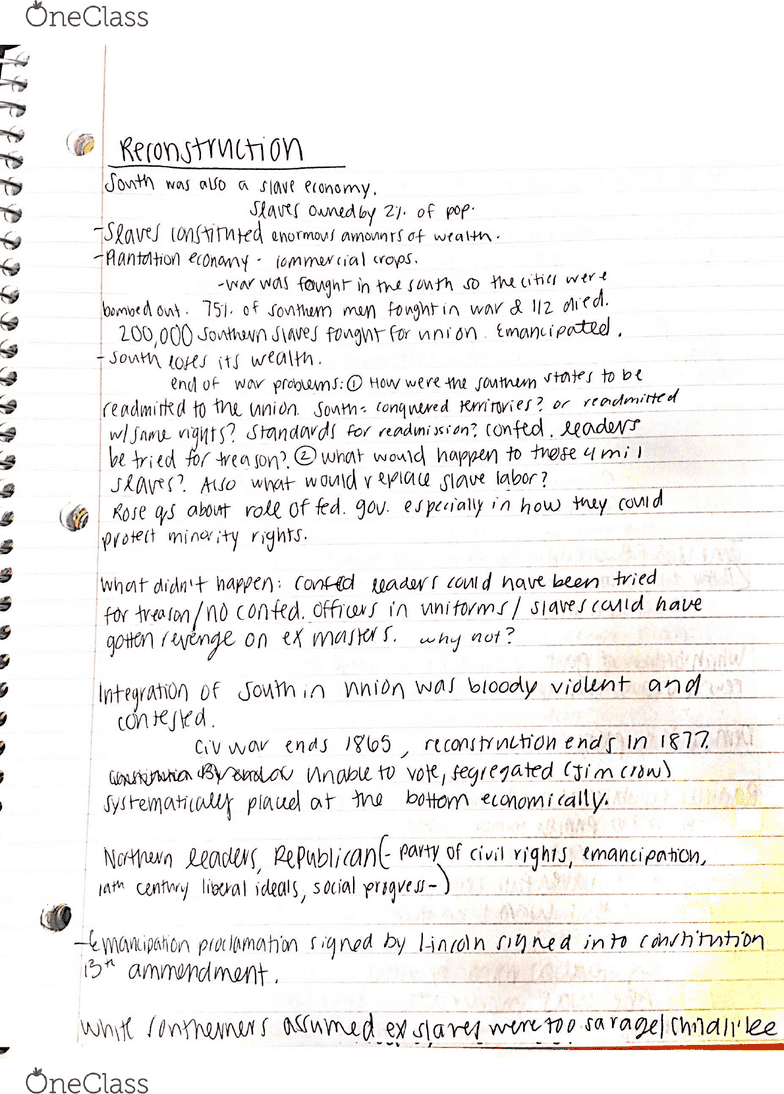 OneClass
Reconstruction
South was also a slave economy.
Slaves owned by 2% of pop.
-Slaves constituted enormous amounts of wealth.
-Plantation economy - commercial crops.
-war was fought in the south so the cities were
bombed out. 75% of southern men fought in war & 1/2 died.
200,000 Southern slaves fought for union. Emancipated.
- South loses its wealth.
end of war problems: ① How were the southern states to be
readmitted to the union. South = conquered territories? or readmitted
w/same rights? Standards for readmission? confed. leaders
be tried for treason? ② what would happen to those 4 mil
slaves? Also what would replace slave labor?
Rose qs about role of fed. gov. especially in how they could
protect minority rights.
What didn't happen: confed leaders could have been tried
for treason/no confed. officers in uniforms/ slaves could have
gotten revenge on ex masters. why not?
Integration of South in union was bloody violent and
contested.
Civ war ends 1865, reconstruction ends in 1877.
unable to vote, segregated (Jim crow)
systematically placed at the bottom economically.
Northern leaders, Republican (- party of civil rights, emancipation,
19th century liberal ideals, social progress-)
-Emancipation proclamation signed by Lincoln signed into constitution
13th ammendment.
White southerners assumed ex slaves were too savage/childlike
OneClass